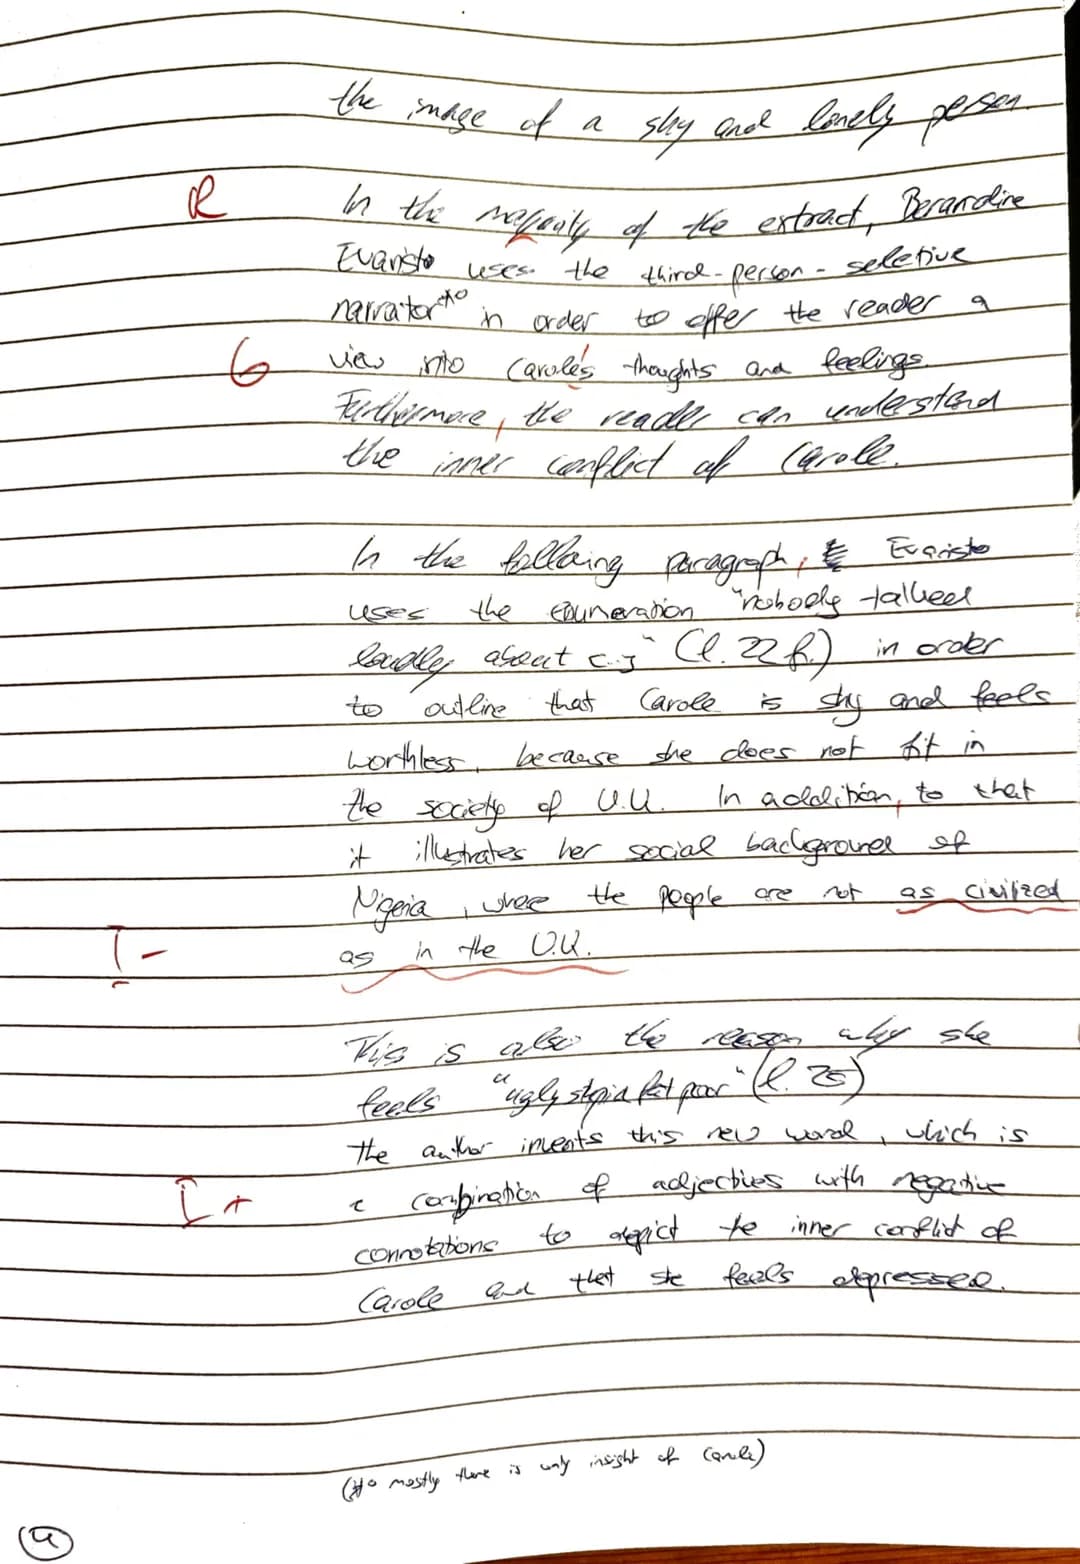 the image of a shy and lonely person.
R In the majority of the extract, Berandine
Evaristo uses the third-person-seletive
narrator*° in order to offer the reader a
G view into Carole's thoughts and feelings.
Furthermore, the reader can understand
the inner conflict of Carole.
In the follwing paragraph, Evaristo
uses the enumeration "nobody talked
loudly about [...]" (l. 22 f.) in order
to outline that Carole is shy and feels
worthless, because she does not fit in
the society of U.K. In addition, to that
it illustrates her social background of
Nigeria, where the people are not as civilized
I- as in the U.K.
This is also the reason why she
feels "ugly stupid fat poor" (l. 25)
the author invents this new word, which is
I+ a combination of adjectives with negative
connotations to depict the inner conflict of
Carole and that she feels depressed.
(*° mostly there is only insight of Carole)
4